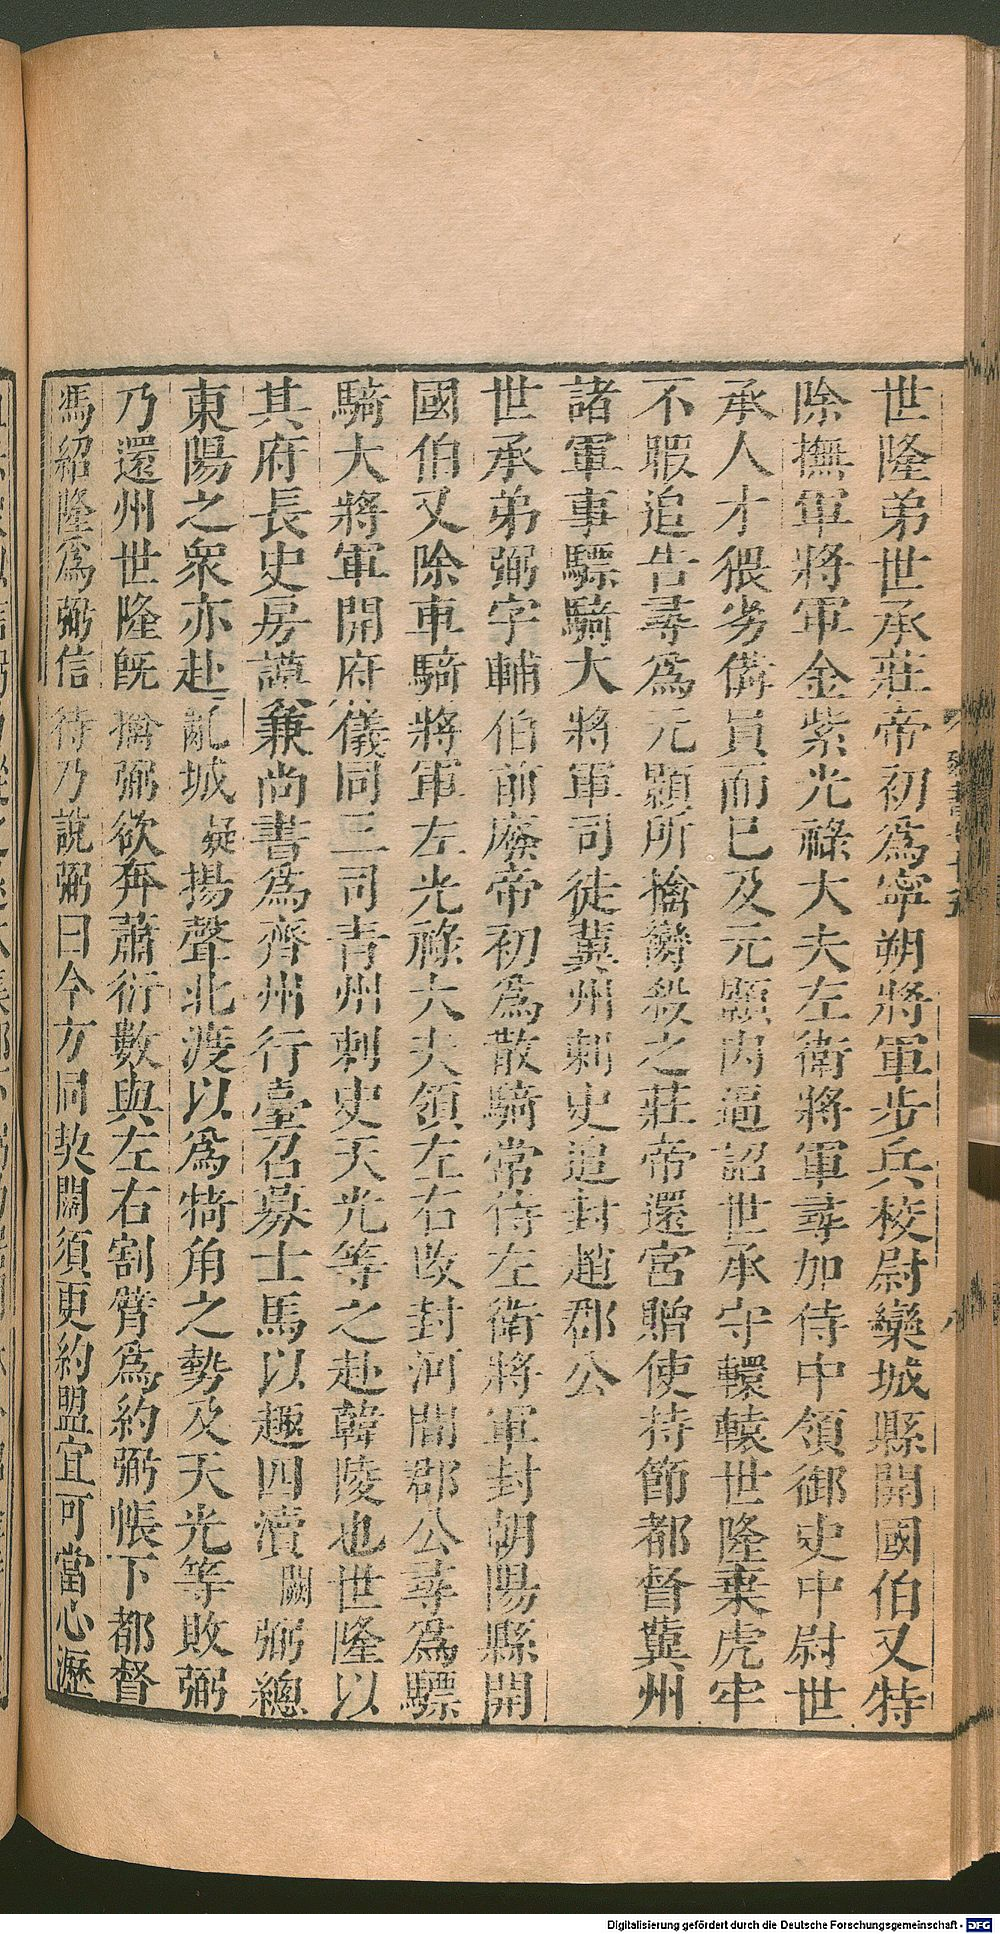 世隆弟世承莊帝初爲寧朔將軍步兵校尉欒城縣開國伯又特
除撫軍將軍金紫光祿大夫左衛將軍尋加侍中領御史中尉世
承人才猥劣備員而已及元顥內逼詔世承守轘轅世隆棄虎牢
不暇追告尋爲元顥所擒臠殺之莊帝還宮贈使持節都督冀州
諸軍事驃騎大將軍司徒冀州刺史追封趙郡公
世承弟弼字輔伯前廢帝初爲散騎常侍左衛將軍封朝陽縣開
國伯又除車騎將軍左光祿大夫領左右改封河間郡公尋爲驃
騎大將軍開府儀同三司青州刺史天光等之赴韓陵也世隆以
其府長史房謨兼尚書爲齊州行臺召募士馬以趣四瀆闕弼總
東陽之衆亦赴亂城疑揚聲北渡以爲犄角之勢及天光等敗弼
乃還州世隆旣擒弼欲奔蕭衍數與左右割臂爲約弼帳下都督
馮紹隆爲弼信待乃說弼曰今方同契闊須更約盟宜可當心瀝
Digitalisierung gefördert durch die Deutsche Forschungsgemeinschaft - DFG